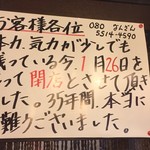 お客様各位 080 なんどん
5514-4590
体力、気力が少しでも
残っている今、1月26日を
もって閉店とさせて頂き
ました。35年間、本当に
有難うございました。